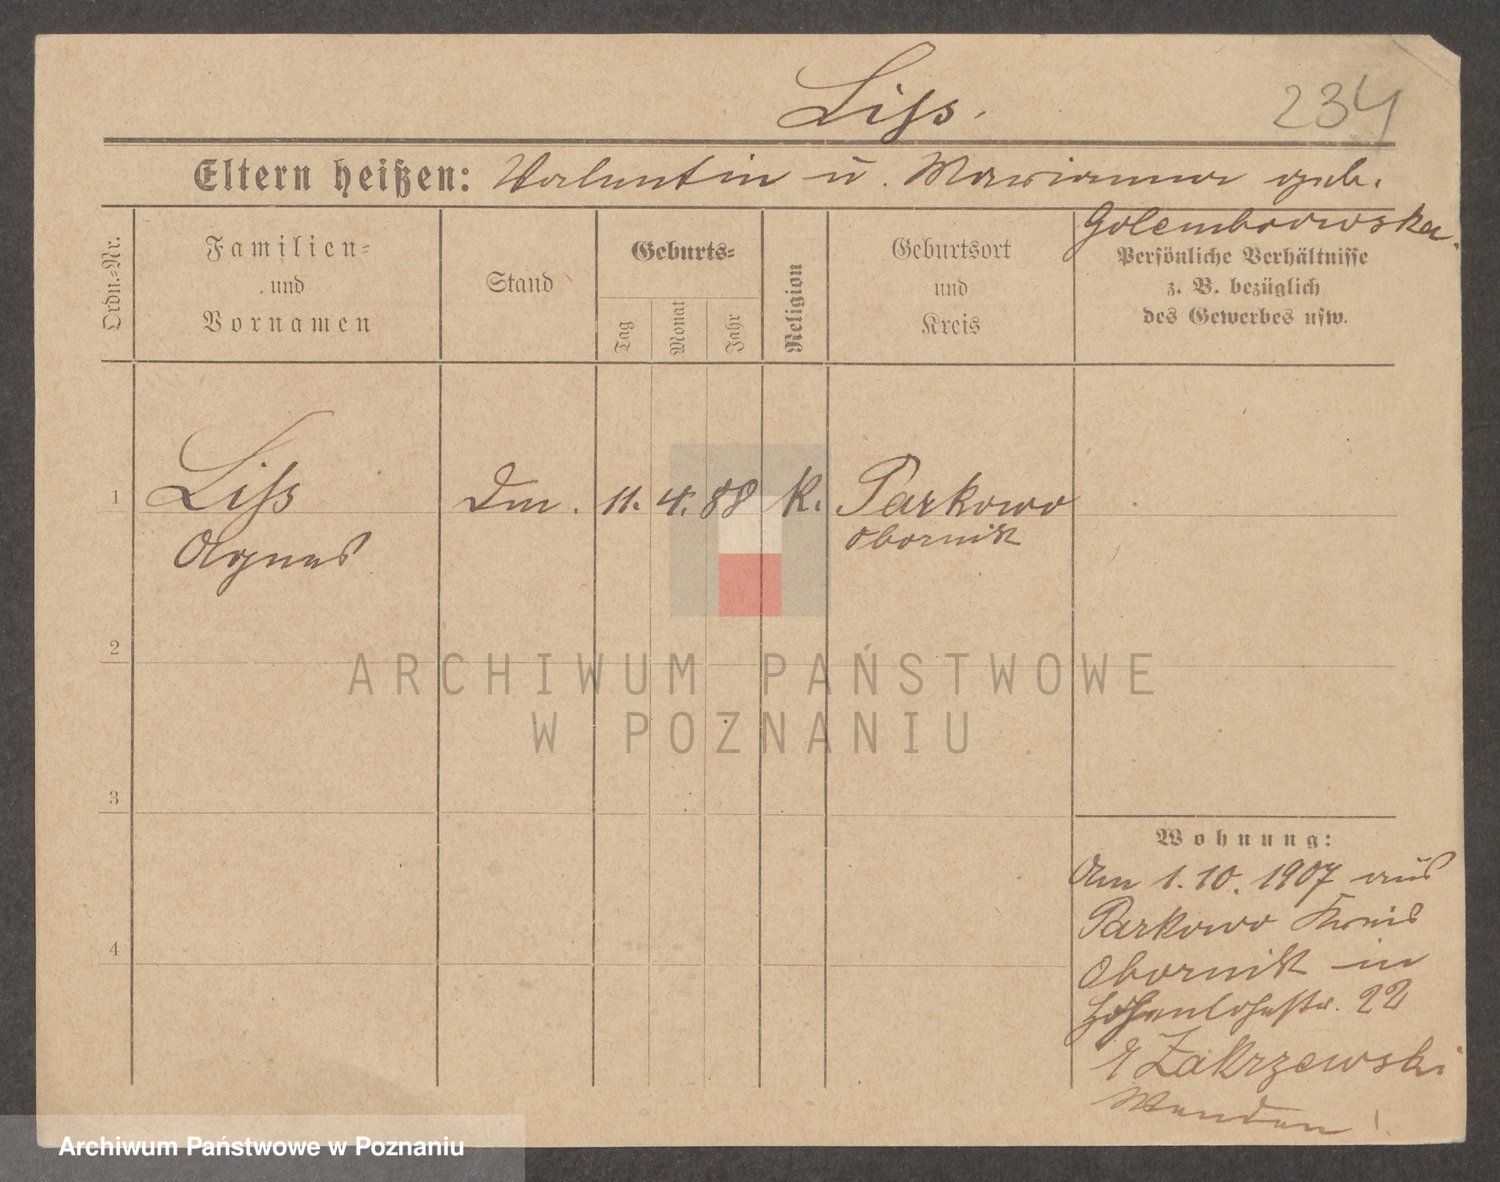 Liss.
234
Eltern heißen: Valentin u. Marianna geb.
Golembrowska.
Ordn.-Nr.
Familien- und Vornamen
Stand
Geburts-
Tag
Monat
Jahr
Religion
Geburtsort und Kreis
Persönliche Verhältnisse
z. B. bezüglich
des Gewerbes usw.
1
Liss
Dm. 11. 4. 88 K. Parkowo
Agnes
Obornik
2
ARCHIWUM PAŃSTWOWE
W POZNANIU
3
Wohnung:
Am 1.10.1907 aus
Parkowo Kreis
4
Obornik in
Hohenlohestr. 22
Zakrzewski
Wenden!
Archiwum Państwowe w Poznaniu